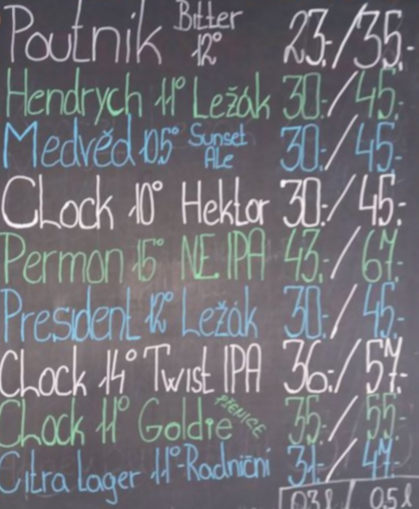 Poutnik Bitter 12° 23,-/35,-
Hendrych 11° Ležák 30,-/45,-
Medvěd 10,5° Sunset Ale 30,-/45,-
CLock 10° Hektor 30,-/45,-
Permon 15° NE IPA 43,-/67,-
President 12° Ležák 30,-/45,-
CLock 14° Twist IPA 36,-/57,-
CLock 11° Goldie PŠENICE 35,-/55,-
Citra Lager 11°-Radniční 31,-/47,-
0,3 l / 0,5 l